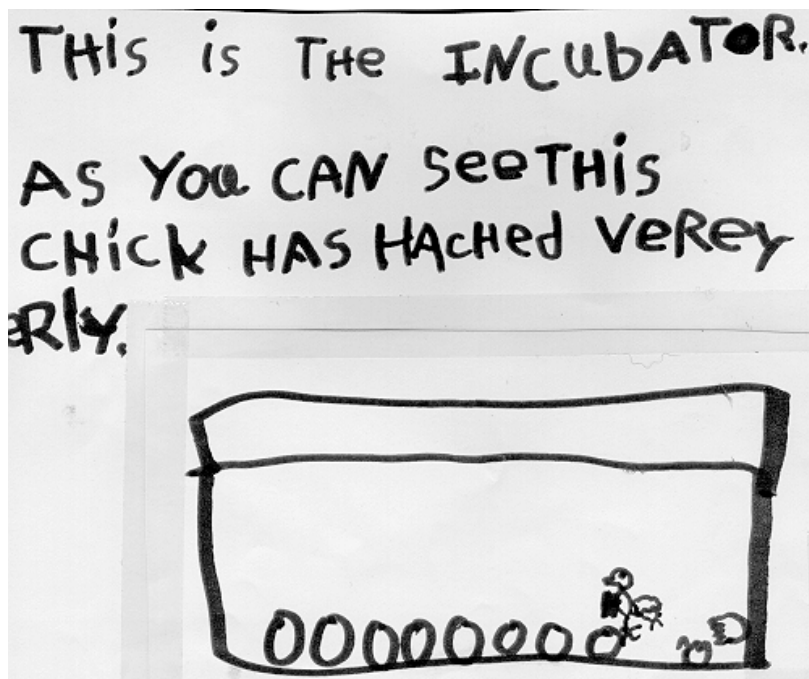 THis is THe INCubATOR.
AS You CAN seeTHis
CHick HAS HAcHed VeRey
eRly.